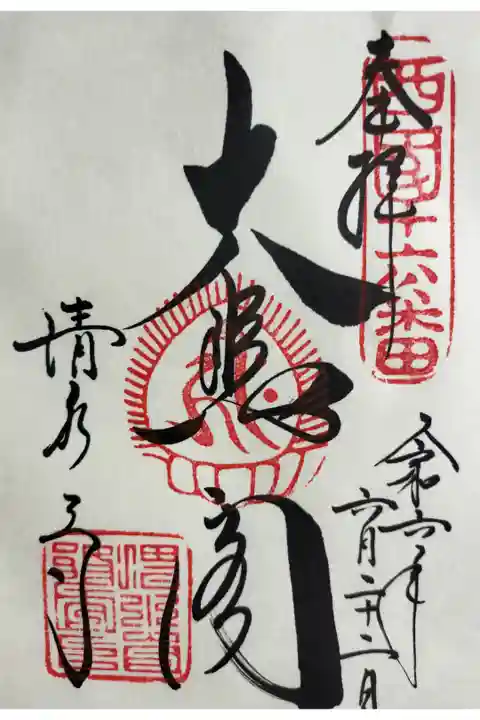 西国十六番
奉拝
令和六年
六月二十二日
大悲閣
清水寺